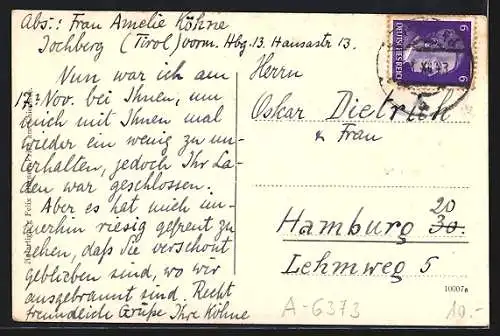 Abs.: Frau Amelie Köhne
Jochberg (Tirol) vorm. Hbg. 13. Hansastr 13.
Nun war ich am
17. Nov. bei Ihnen, um
mich mit Ihnen mal
wieder ein wenig zu un-
erhalten, jedoch Ihr La-
den war geschlossen.
Aber es hat mich un-
merhin riesig gefreut zu
sehen, daß Sie verschont
geblieben sind, wo wir
ausgebrannt sind. Recht
freundliche Grüße Ihre Köhne
Herrn
Oskar Dietrich
u Frau
20
Hamburg 30.
Lehmweg 5
6 6
DEUTSCHES REICH
10007a
A-6373
10.-